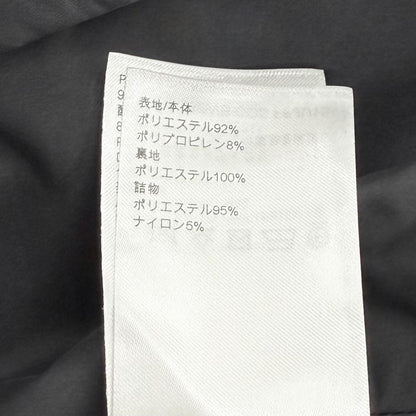 表地/本体
ポリエステル92%
ポリプロピレン8%
裏地
ポリエステル100%
詰物
ポリエステル95%
ナイロン5%